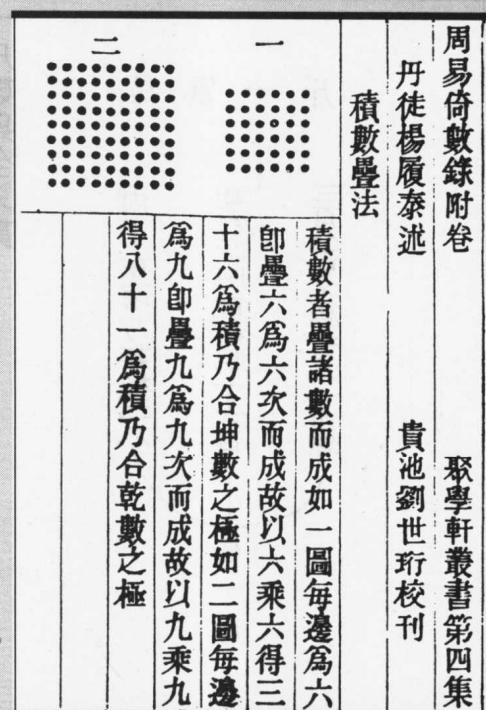 周易倚數錄附卷 聚學軒叢書第四集
丹徒楊履泰述 貴池劉世珩校刊
積數疊法
一
二
積數者疊諸數而成如一圖每邊爲六
卽疊六爲六次而成故以六乘六得三
十六爲積乃合坤數之極如二圖每邊
爲九卽疊九爲九次而成故以九乘九
得八十一爲積乃合乾數之極